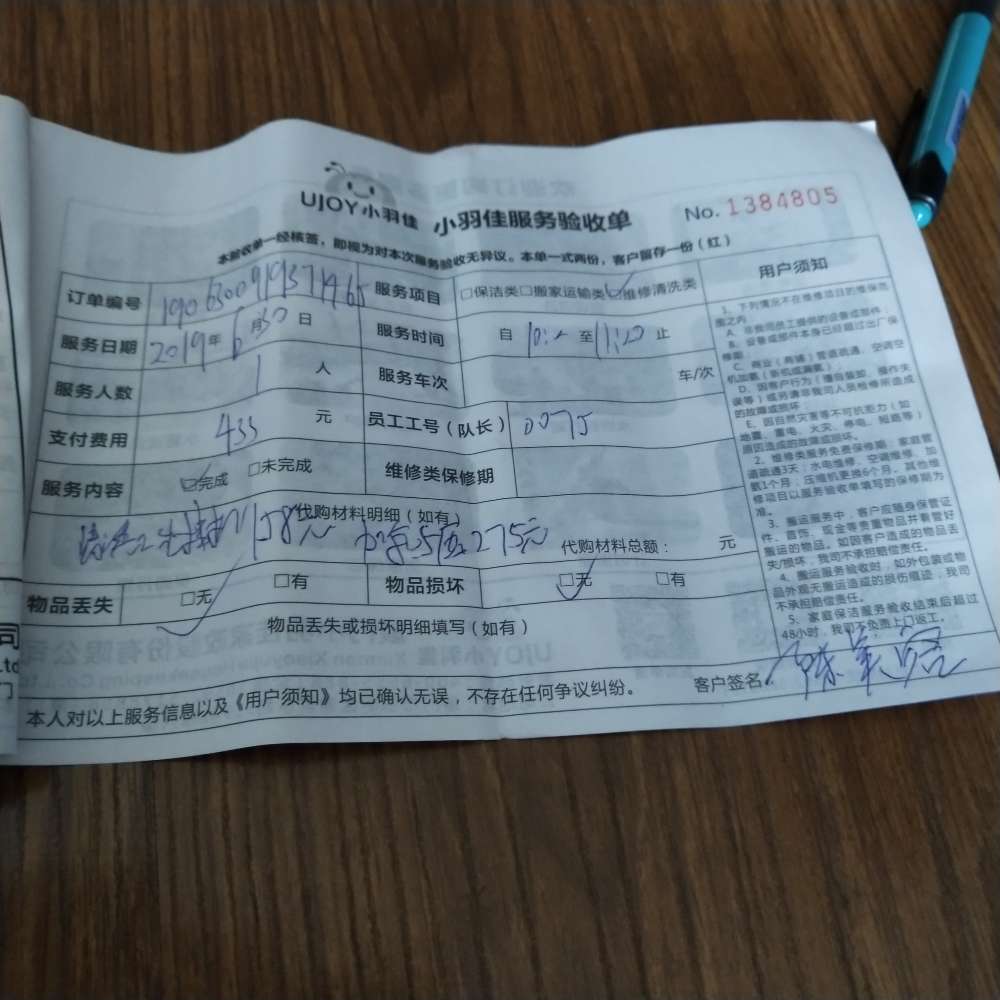 UJOY小羽佳 小羽佳服务验收单 No. 1384805
本验收单一经核签，即视为对本次服务验收无异议。本单一式两份，客户留存一份（红）
订单编号 服务项目 □保洁类□搬家运输类☑维修清洗类
服务日期 2019年6月30日 服务时间 自 10:20 至 11:20 止
服务人数 1 人 服务车次 车/次
支付费用 433 元 员工工号（队长） 0075
服务内容 ☑完成 □未完成 维修类保修期
代购材料明细（如有）
158元 275元 代购材料总额： 元
物品丢失 ☑无 □有 物品损坏 ☑无 □有
物品丢失或损坏明细填写（如有）
本人对以上服务信息以及《用户须知》均已确认无误，不存在任何争议纠纷。 客户签名
用户须知
1、下列情况不在维修项目的维保范
围之内
A、非我司员工提供的设备或部件；
B、设备或部件本身已经超过出厂保
修期；
C、商业（商铺）管道疏通、空调空
机加氨（拆机或漏氨）；
D、因客户行为（擅自装卸、操作失
误等）或另请非我司人员检修所造成
的故障或损坏；
E、因自然灾害等不可抗拒力（如
地震、雷电、火灾、停电、短路等）
原因造成的故障或损坏。
2、维修类服务免费保修期：家庭管
道疏通3天；水电维修、空调维修、加
氨1个月；压缩机更换6个月，其他维
修项目以服务验收单填写的保修期为
准。
3、搬运服务中，客户应随身保管证
件、首饰、现金等贵重物品并看管好
搬运的物品。如因客户造成的物品丢
失/损坏，我司不承担赔偿责任。
4、搬运服务验收时，如外包装或物
品外观无搬运造成的损伤痕迹，我司
不承担赔偿责任。
5、家庭保洁服务验收结束后超过
48小时，我司不负责上门返工。
司
Ltd
门